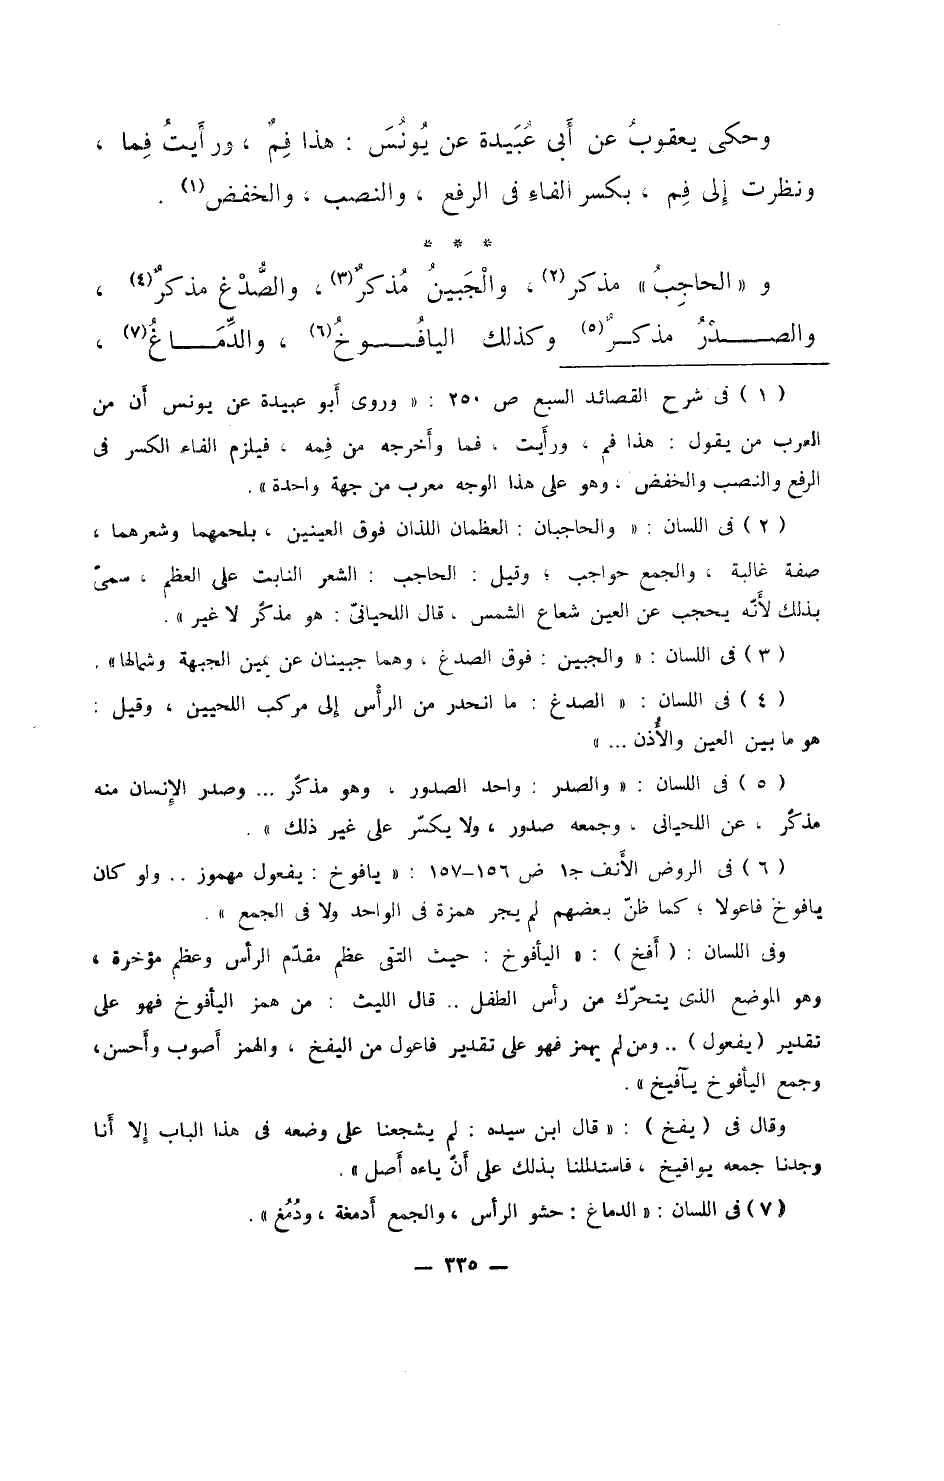 وحكى يعقوبُ عن أَبى عُبَيدة عن يُونُسَ : هذا فِمٌ ، ورأَيتُ فِما ،
ونظرت إلى فِم ، بكسر الفاءِ فى الرفع ، والنصب ، والخفض(١) .
* * *
و « الحاجِبُ» مذكر(٢) ، والْجَبينُ مُذكرٌ(٣) ، والصُّدْغ مذكرٌ(٤) ،
والصــدْرُ مذكــرٌ(٥) وكذلك اليافُــوخُ(٦) ، والدِّمَــاغُ(٧) ،
( ١ ) فى شرح القصائد السبع ص ٢٥٠ : « وروى أَبو عبيدة عن يونس أَن من
العرب من يقول : هذا فم ، ورأَيت ، فما وأَخرجه من فِمه ، فيلزم الفاء الكسر فى
الرفع والنصب والخفض ، وهو على هذا الوجه معرب من جهة واحدة » .
( ٢ ) فى اللسان : « والحاجبان : العظمان اللذان فوق العينين ، بلحمهما وشعرهما ،
صفة غالبة ، والجمع حواجب ؛ وقيل : الحاجب : الشعر النابت على العظم ، سمىّ
بذلك لأَنّه يحجب عن العين شعاع الشمس ، قال اللحيانىّ : هو مذكّر لا غير » .
( ٣ ) فى اللسان : « والجبين : فوق الصدغ ، وهما جبينان عن يمين الجبهة وشمالها » .
( ٤ ) فى اللسان : « الصدغ : ما انحدر من الرأْس إلى مركب اللحيين ، وقيل :
هو ما بين العين والأُذن ... »
( ٥ ) فى اللسان : « والصدر : واحد الصدور ، وهو مذكّر ... وصدر الإِنسان منه
مذكّر ، عن اللحيانى ، وجمعه صدور ، ولا يكسّر على غير ذلك » .
( ٦ ) فى الروض الأَنف ج١ ص ١٥٦–١٥٧ : « يافوخ : يفعول مهموز .. ولو كان
يافوخ فاعولا ؛ كما ظنّ بعضهم لم يجر همزة فى الواحد ولا فى الجمع » .
وفى اللسان : ( أَفخ ) : « اليأفوخ : حيث التقى عظم مقدّم الرأس وعظم مؤخرة ،
وهو الموضع الذى يتحرّك من رأس الطفل .. قال الليث : من همز اليأفوخ فهو على
تقدير ( يفعول ) .. ومن لم يهمز فهو على تقدير فاعول من اليفخ ، والهمز أَصوب وأَحسن ،
وجمع اليأفوخ يـآفيخ » .
وقال فى ( يفخ ) : « قال ابن سيده : لم يشجعنا على وضعه فى هذا الباب إلا أَنا
وجدنا جمعه يوافيخ ، فاستدللنا بذلك على أَنّ ياءه أَصل » .
( ٧ ) فى اللسان : « الدماغ : حشو الرأس ، والجمع أَدمغة ، ودُمُغ » .
— ٣٣٥ —